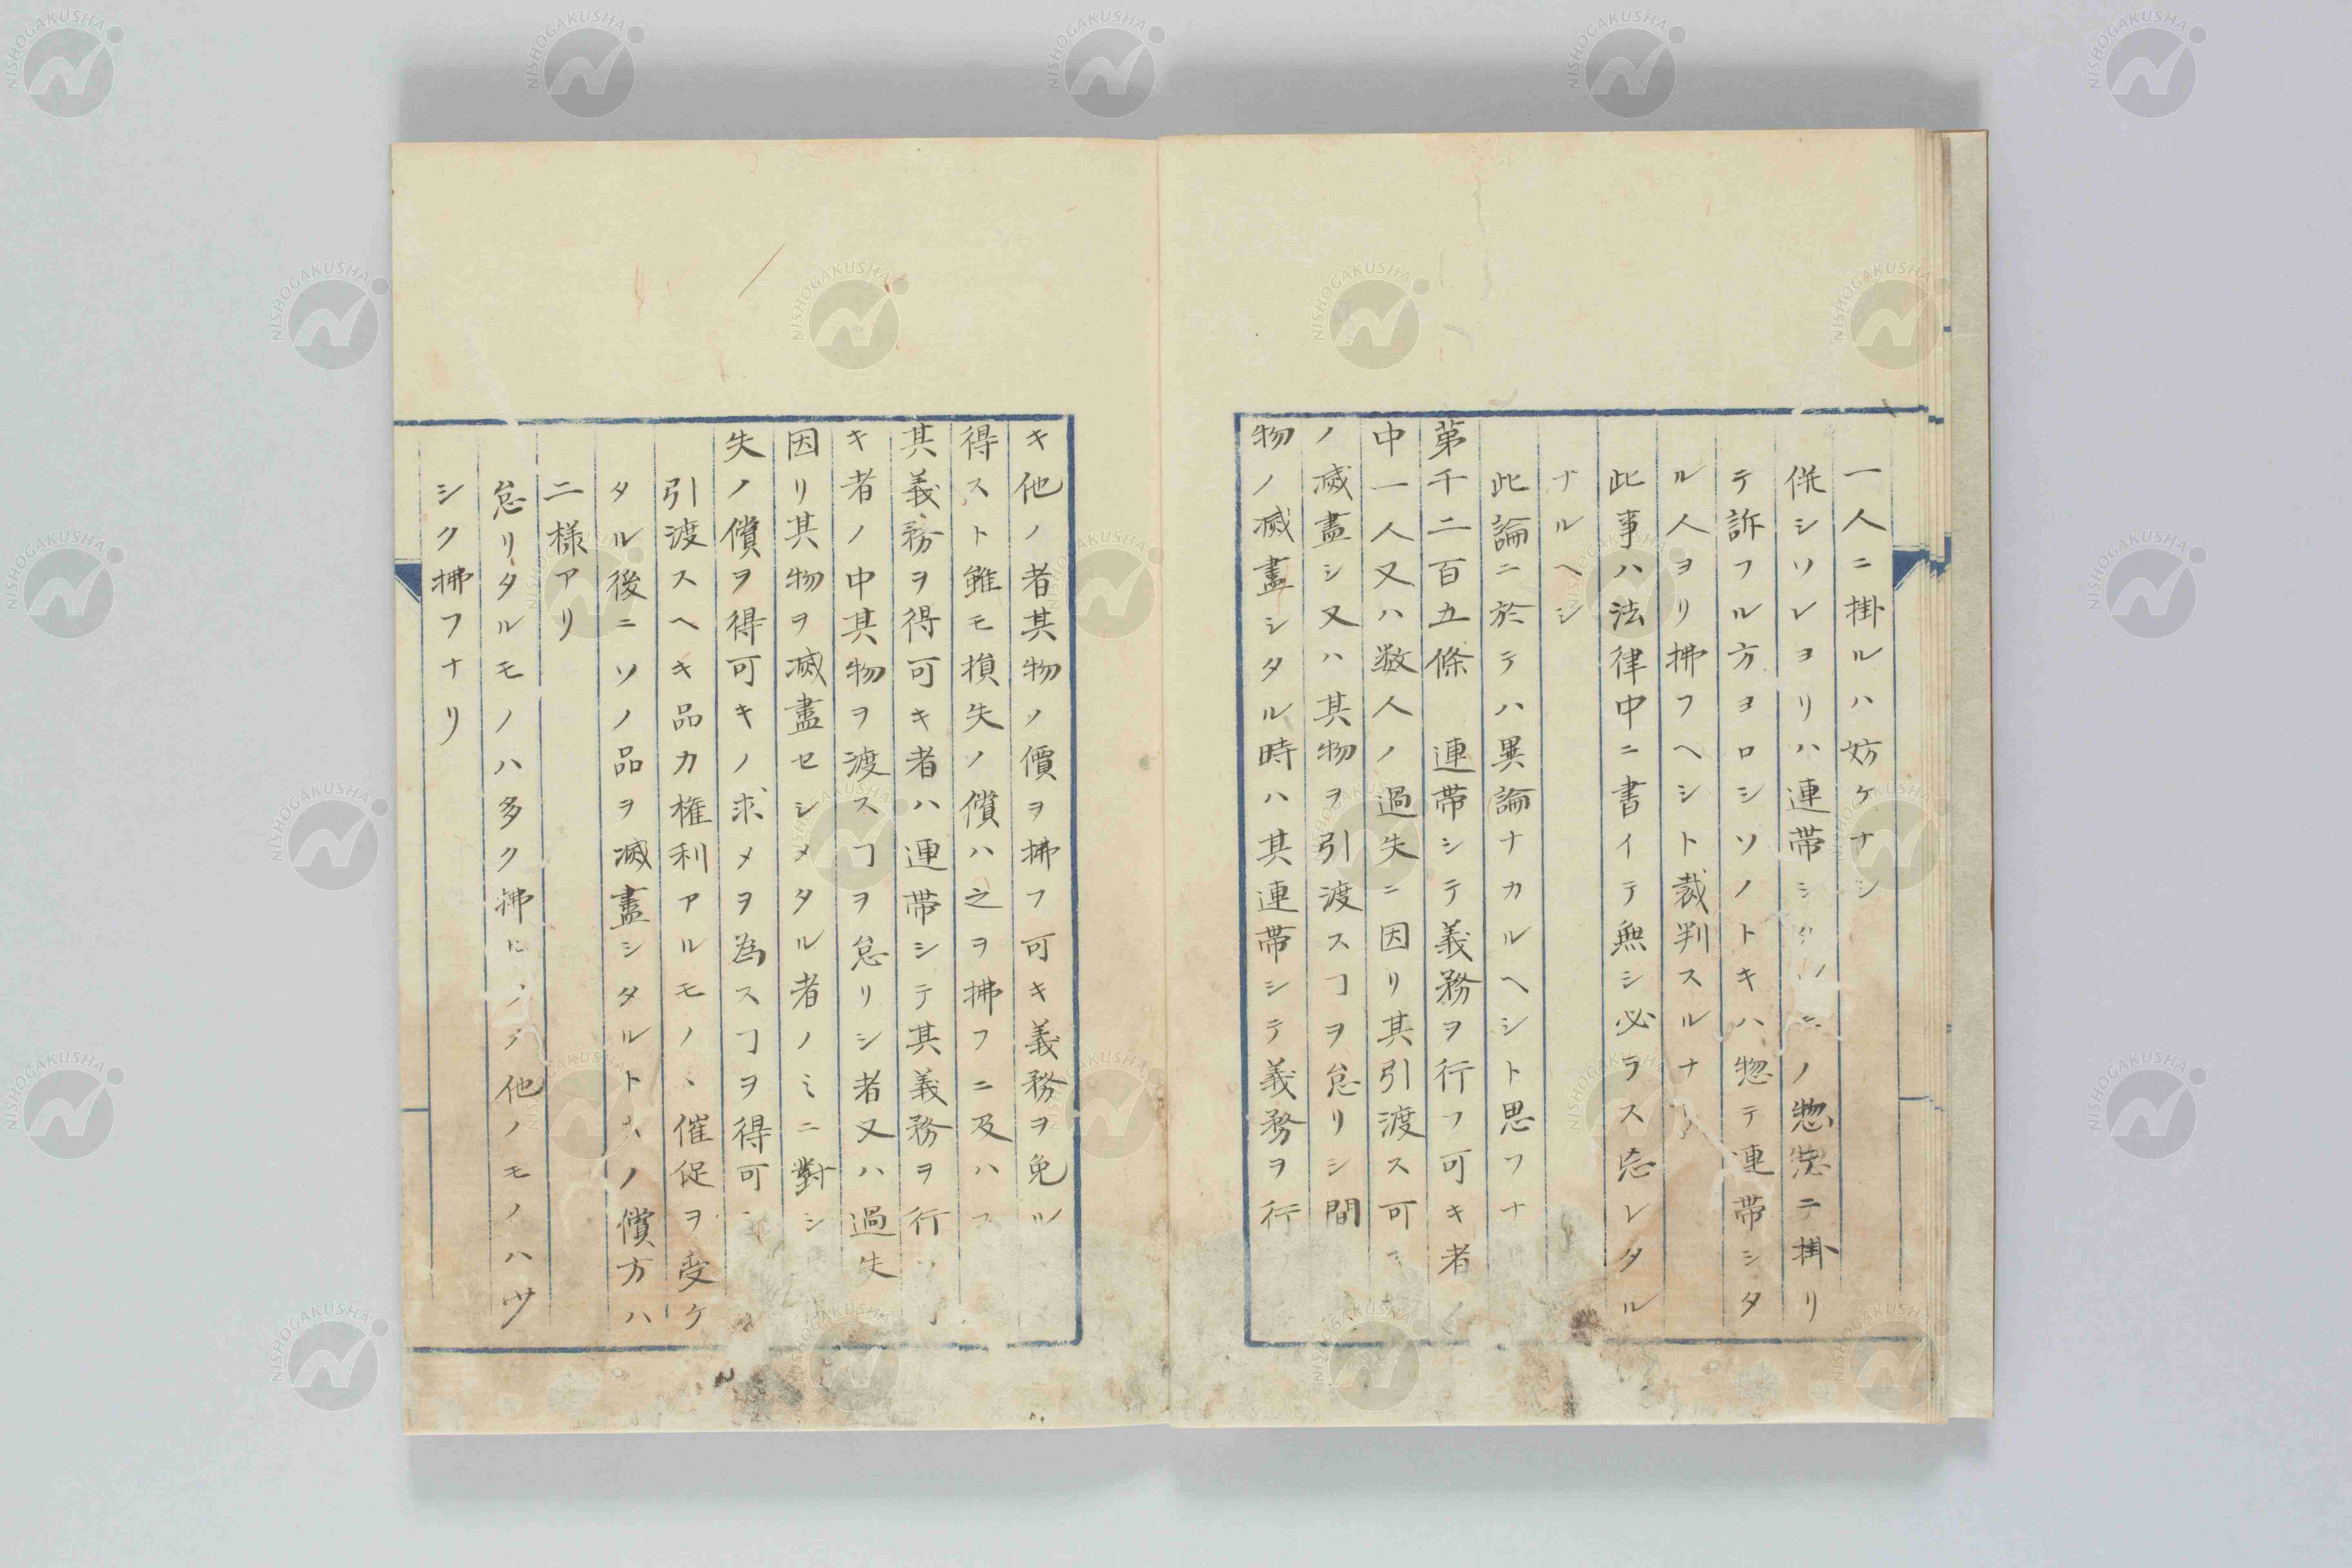 一人ニ掛ルハ妨ケナシ
併シソレヨリハ連帯シ ノ惣 テ掛リ
テ訴フル方ヨロシソノトキハ惣テ連帯シタ
ル人ヨリ拂フヘシト裁判スルナ
此事ハ法律中ニ書イテ無シ必ラス忘レタル
ナルヘシ
此論ニ於テハ異論ナカルヘシト思フナ
第千二百五條 連帯シテ義務ヲ行フ可キ者
中一人又ハ数人ノ過失ニ因リ其引渡ス可
ノ滅盡シ又ハ其物ヲ引渡スヿヲ怠リシ間
物ノ滅盡シタル時ハ其連帯シテ義務ヲ行
キ他ノ者其物ノ價ヲ拂フ可キ義務ヲ免ル
得スト雖モ損失ノ償ハ之ヲ拂フニ及ハス
其義務ヲ得可キ者ハ連帯シテ其義務ヲ行
キ者ノ中其物ヲ渡スヿヲ怠リシ者又ハ過失
因リ其物ヲ滅盡セシメタル者ノミニ對シ
失ノ償ヲ得可キノ求メヲ為スヿヲ得可
引渡スヘキ品カ権利アルモノヽ催促ヲ受ケ
タル後ニソノ品ヲ滅盡シタルト ノ償方ハ
二様アリ
怠リタルモノハ多ク拂ヒ 他ノモノハ少
シク拂フナリ
NISHOGAKUSHA